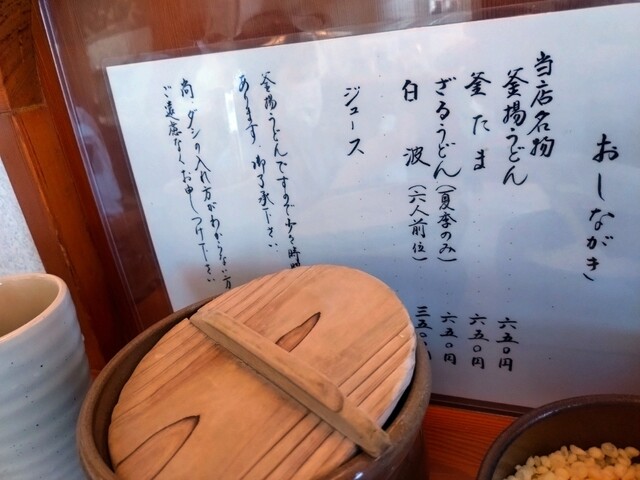 おしながき
当店名物
釜揚うどん 六五〇円
釜たま 六五〇円
ざるうどん(夏季のみ) 六五〇円
白波(六人前位) 三五〇〇円
ジュース
釜揚うどんですので少々時間
あります。御了承下さい。
尚、ダシの入れ方がわからない方
ご遠慮なくお申しつけ下さい